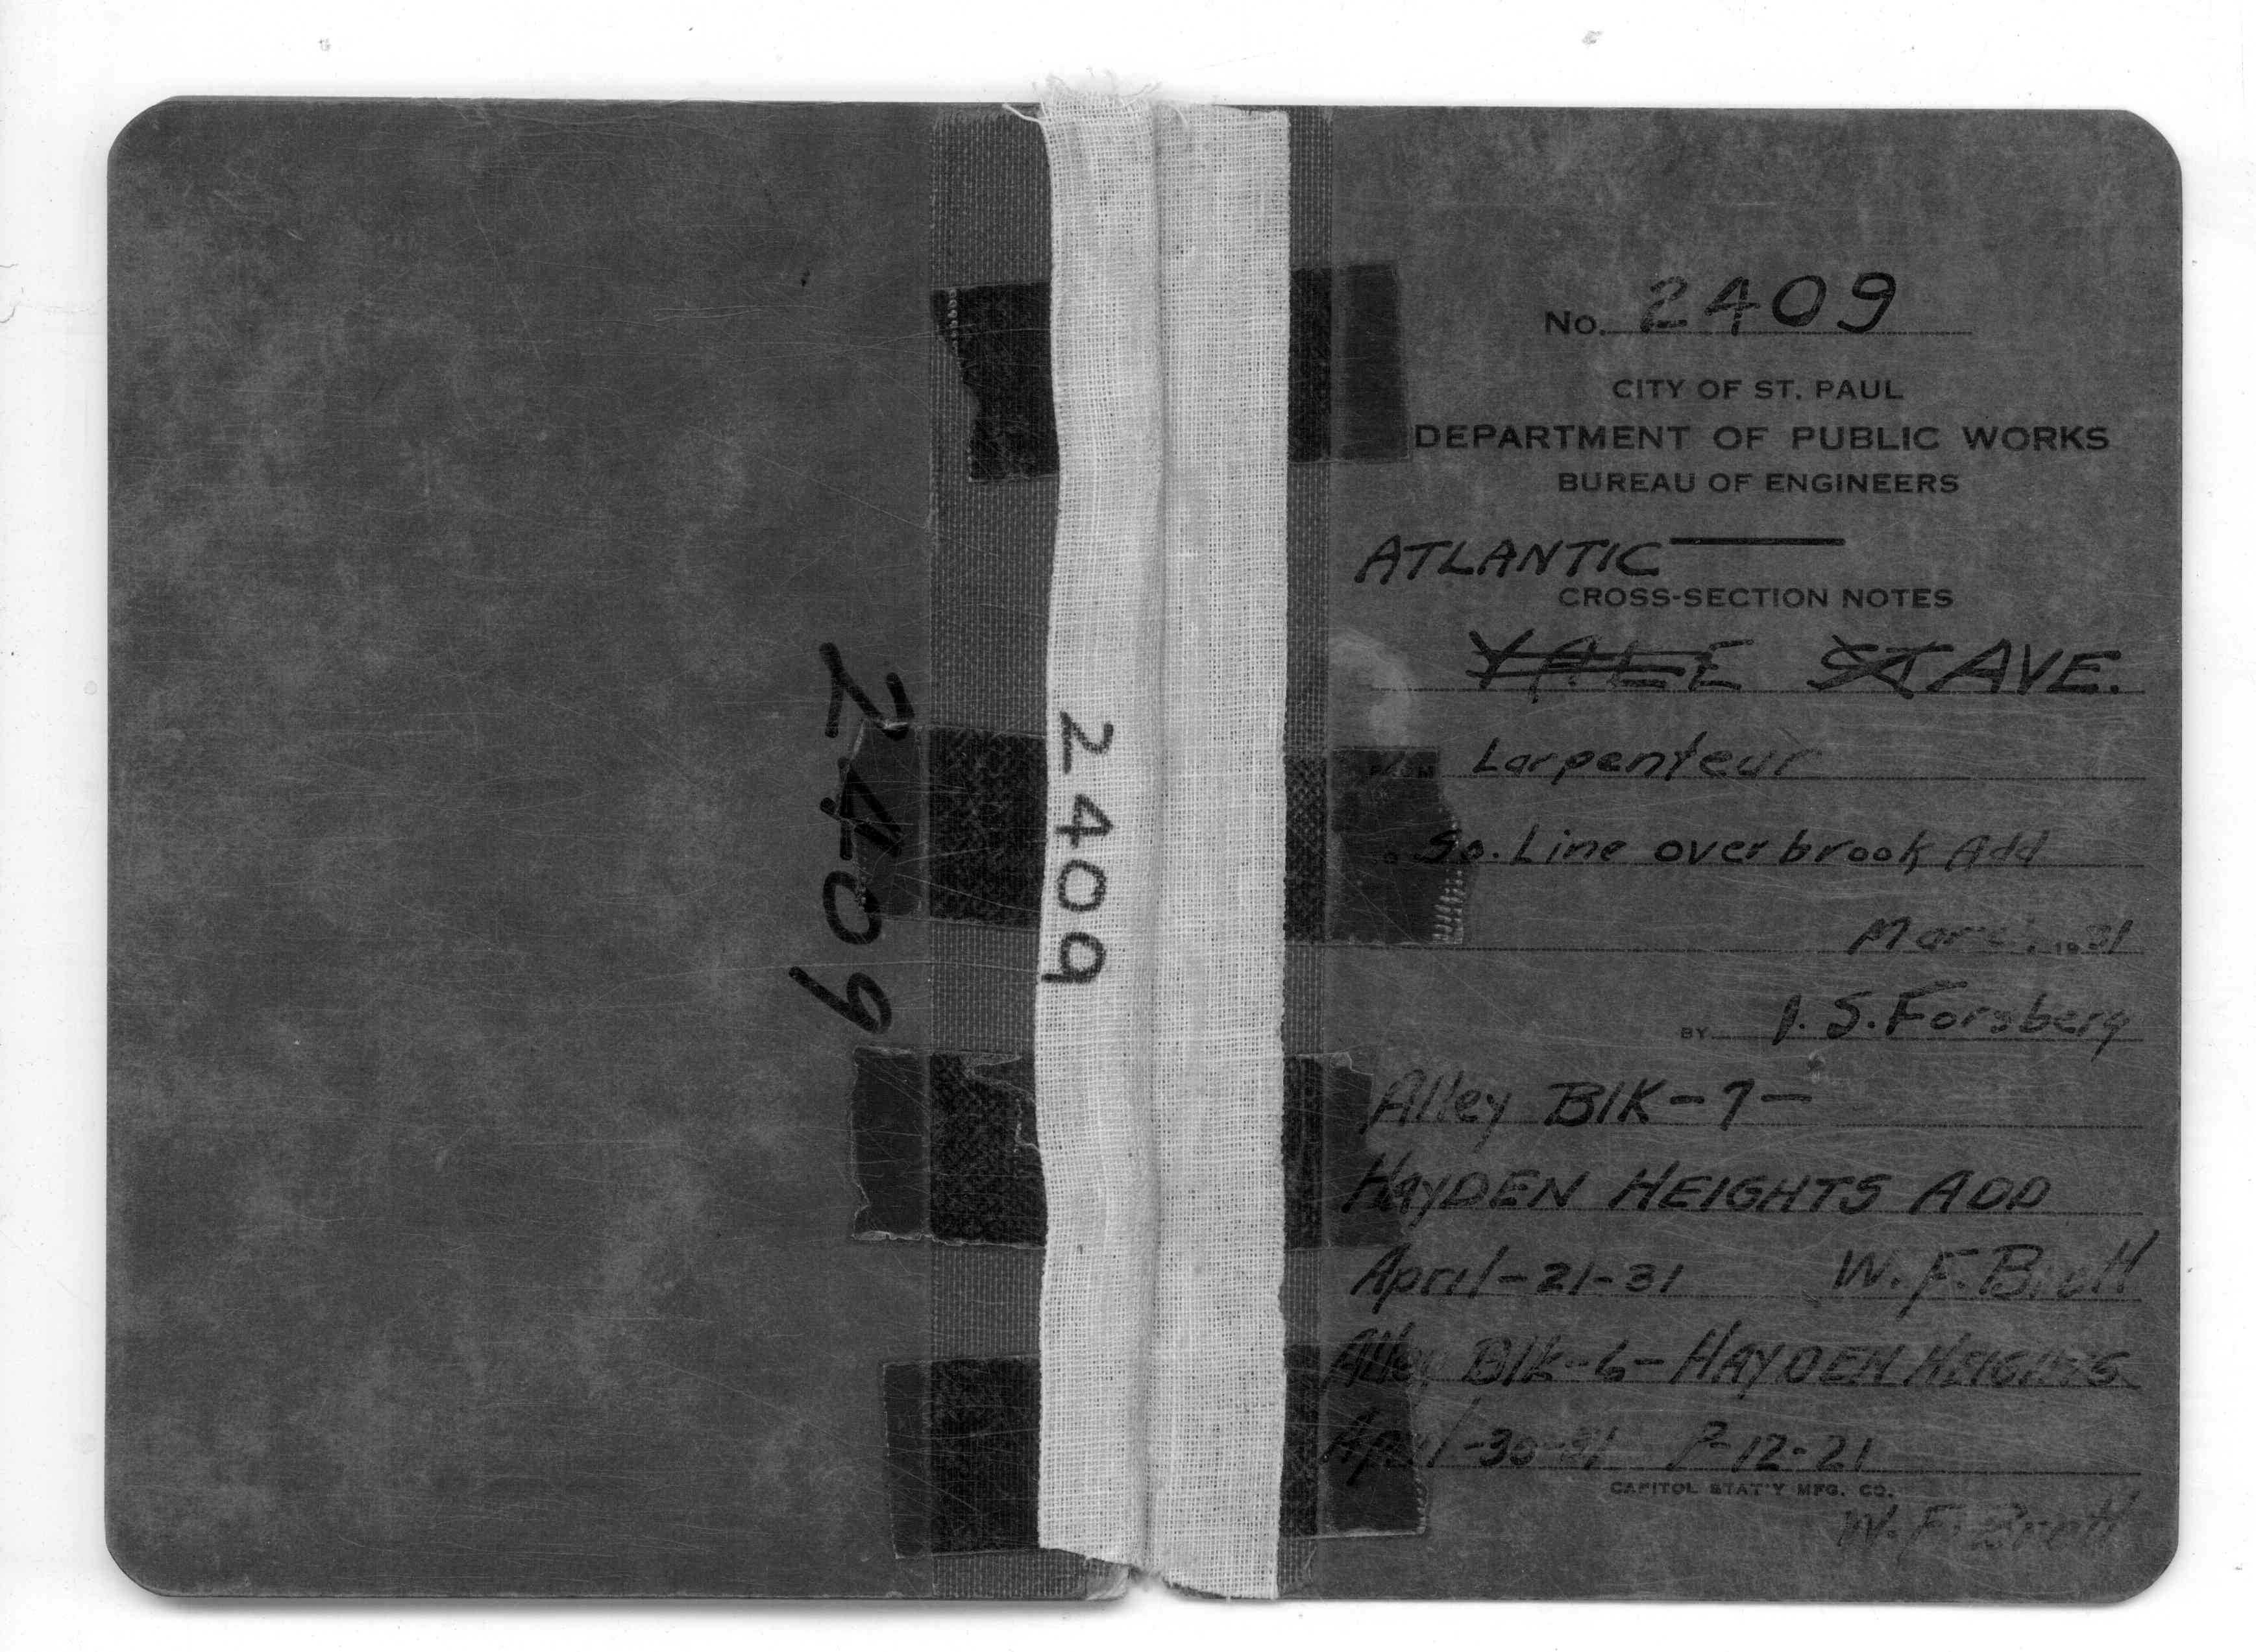 2409
2409
No. 2409
CITY OF ST. PAUL
DEPARTMENT OF PUBLIC WORKS
BUREAU OF ENGINEERS
ATLANTIC
CROSS-SECTION NOTES
YALE ST AVE.
Larpenteur
So. Line overbrook Add
1931
BY I. S. Forsberg
Alley Blk-7-
HAYDEN HEIGHTS ADD
April-21-31 W. F. Brett
Alley Blk-6-HAYDEN HEIGHTS
April-30-31 P-12-21
CAPITOL STAT'Y MFG. CO.
W. F. Brett